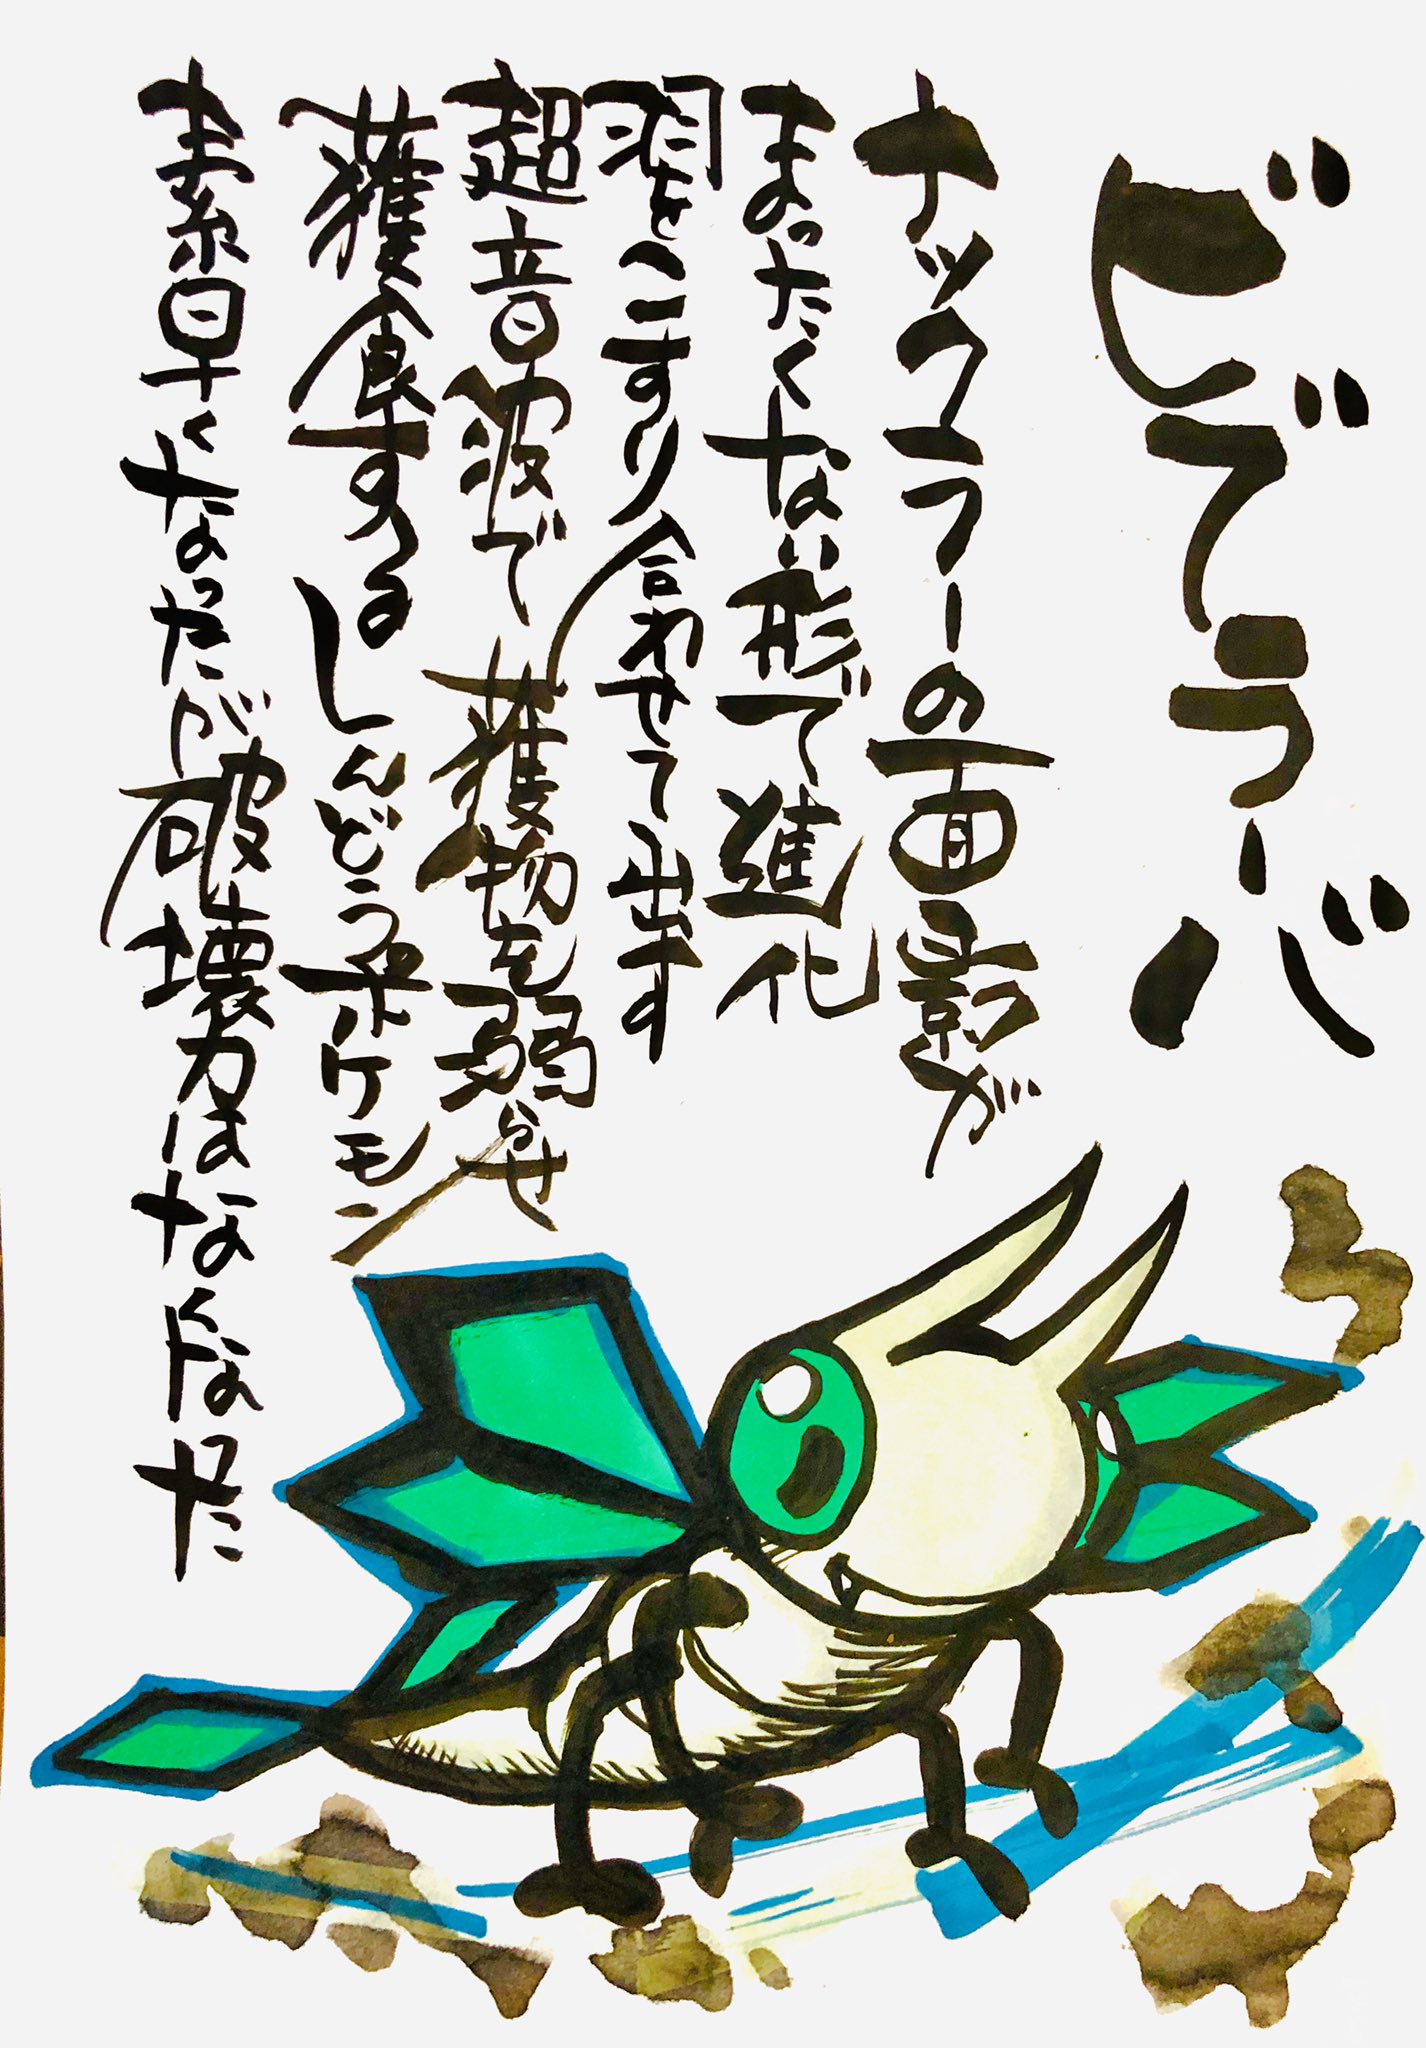 ビブラーバ
ナックラーの面影が
まったくない形で進化
羽をこすり合わせて出す
超音波で獲物を弱らせ
獲食するしんどうポケモン
素早くなったが破壊力はなくなった